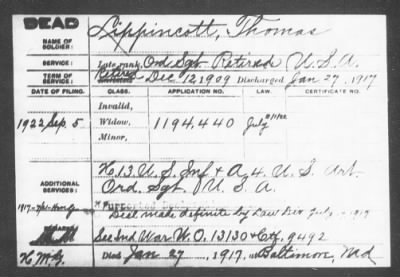 DEAD
Lippincott, Thomas
NAME OF SOLDIER:
SERVICE: Late rank, Ord Sgt Retired U.S.A.
TERM OF SERVICE: Retired Dec 12, 1909 Discharged Jan 27, 1917
DATE OF FILING. CLASS. APPLICATION NO. LAW. CERTIFICATE NO.
Invalid,
1922 Sep. 5 Widow, 1194,440 July
Minor,
H. 13 U.S. Inf & A 4. U.S. Art.
Ord. Sgt. U.S.A.
ADDITIONAL SERVICES:
made definite by Law Div July 1919
See Ind War W.O. 13130 & Ctf. 9492
Died Jan 27, 1917, at Baltimore, Md